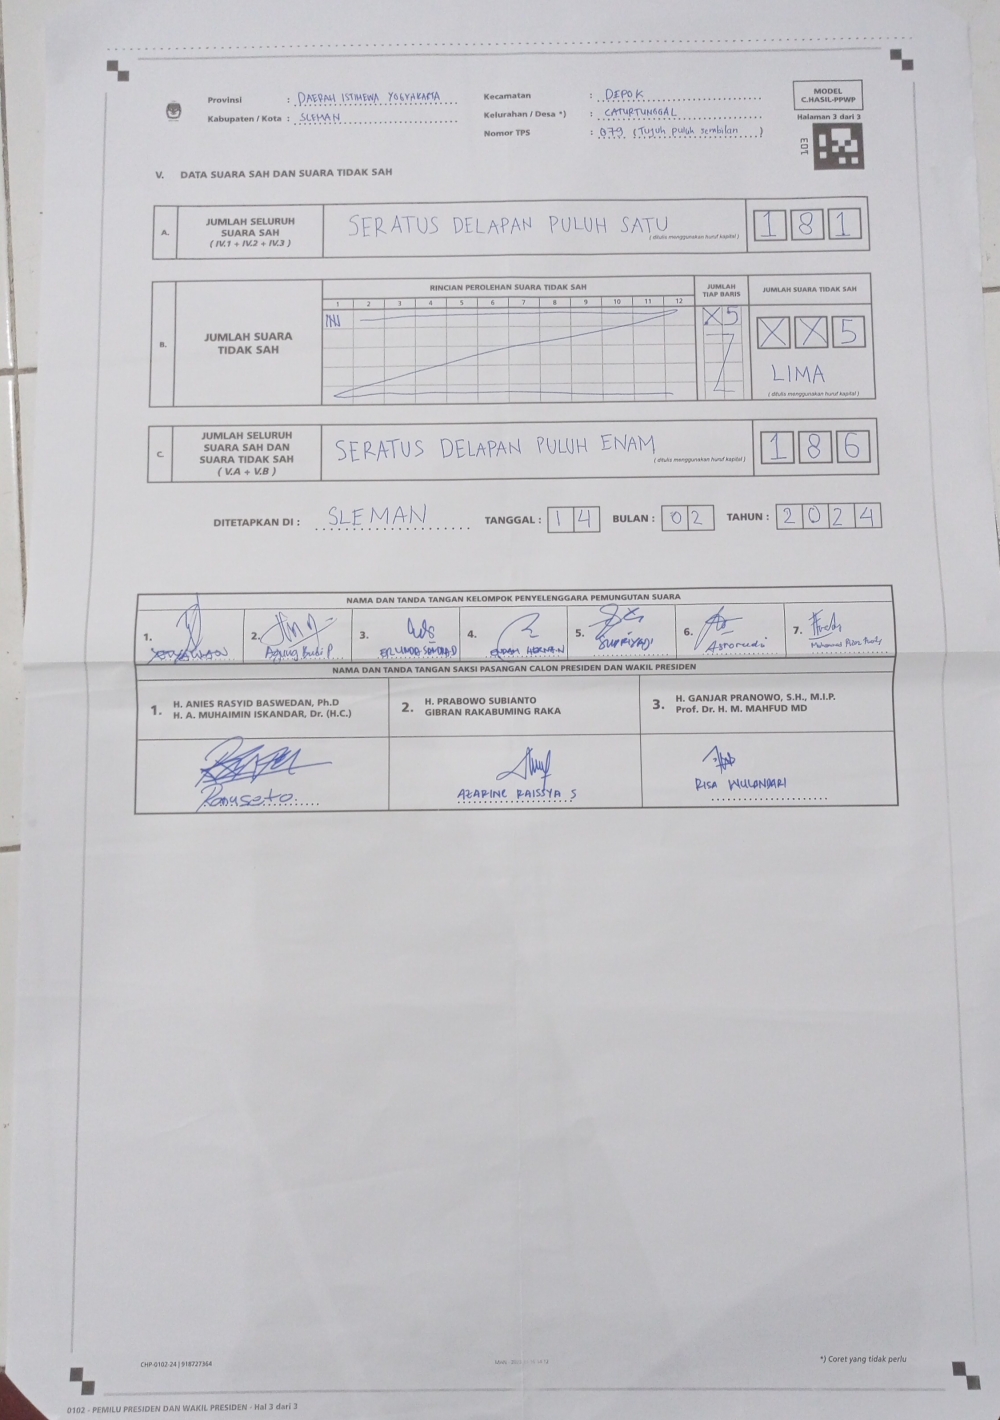 Provinsi : DAERAH ISTIMEWA YOGYAKARTA
Kabupaten / Kota : SLEMAN
Kecamatan : DEPOK
Kelurahan / Desa *) : CATURTUNGGAL
Nomor TPS : 079 (Tujuh puluh sembilan)
MODEL
C.HASIL-PPWP
Halaman 3 dari 3
ED1
V. DATA SUARA SAH DAN SUARA TIDAK SAH
A. JUMLAH SELURUH
SUARA SAH
( IV.1 + IV.2 + IV.3 )
SERATUS DELAPAN PULUH SATU
( ditulis menggunakan huruf kapital )
1 8 1
B. JUMLAH SUARA
TIDAK SAH
RINCIAN PEROLEHAN SUARA TIDAK SAH
1 2 3 4 5 6 7 8 9 10 11 12
JUMLAH
TIAP BARIS
X 5
JUMLAH SUARA TIDAK SAH
X X 5
LIMA
( ditulis menggunakan huruf kapital )
C. JUMLAH SELURUH
SUARA SAH DAN
SUARA TIDAK SAH
( V.A + V.B )
SERATUS DELAPAN PULUH ENAM
( ditulis menggunakan huruf kapital )
1 8 6
DITETAPKAN DI : SLEMAN TANGGAL : 1 4 BULAN : 0 2 TAHUN : 2 0 2 4
NAMA DAN TANDA TANGAN KELOMPOK PENYELENGGARA PEMUNGUTAN SUARA
1. 2. 3. 4. 5. 6. 7.
Agung Budi P SUPRIYADI Asrorudi
NAMA DAN TANDA TANGAN SAKSI PASANGAN CALON PRESIDEN DAN WAKIL PRESIDEN
1. H. ANIES RASYID BASWEDAN, Ph.D
H. A. MUHAIMIN ISKANDAR, Dr. (H.C.)
2. H. PRABOWO SUBIANTO
GIBRAN RAKABUMING RAKA
3. H. GANJAR PRANOWO, S.H., M.I.P.
Prof. Dr. H. M. MAHFUD MD
AZARINE RAISSYA S
RISA WULANDARI
CHP-0102-24 | 918727364
*) Coret yang tidak perlu
0102 - PEMILU PRESIDEN DAN WAKIL PRESIDEN - Hal 3 dari 3